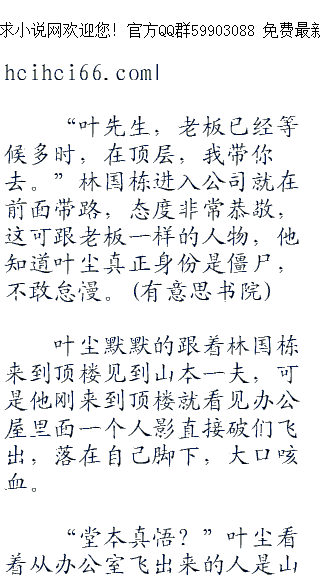 求小说网欢迎您！官方QQ群59903088 免费最新
hcihci66.com|
“叶先生，老板已经等
候多时，在顶层，我带你
去。”林国栋进入公司就在
前面带路，态度非常恭敬，
这可跟老板一样的人物，他
知道叶尘真正身份是僵尸，
不敢怠慢。(有意思书院)
叶尘默默的跟着林国栋
来到顶楼见到山本一夫，可
是他刚来到顶楼就看见办公
屋里面一个人影直接破们飞
出，落在自己脚下，大口咳
血。
“堂本真悟？”叶尘看
着从办公室飞出来的人是山